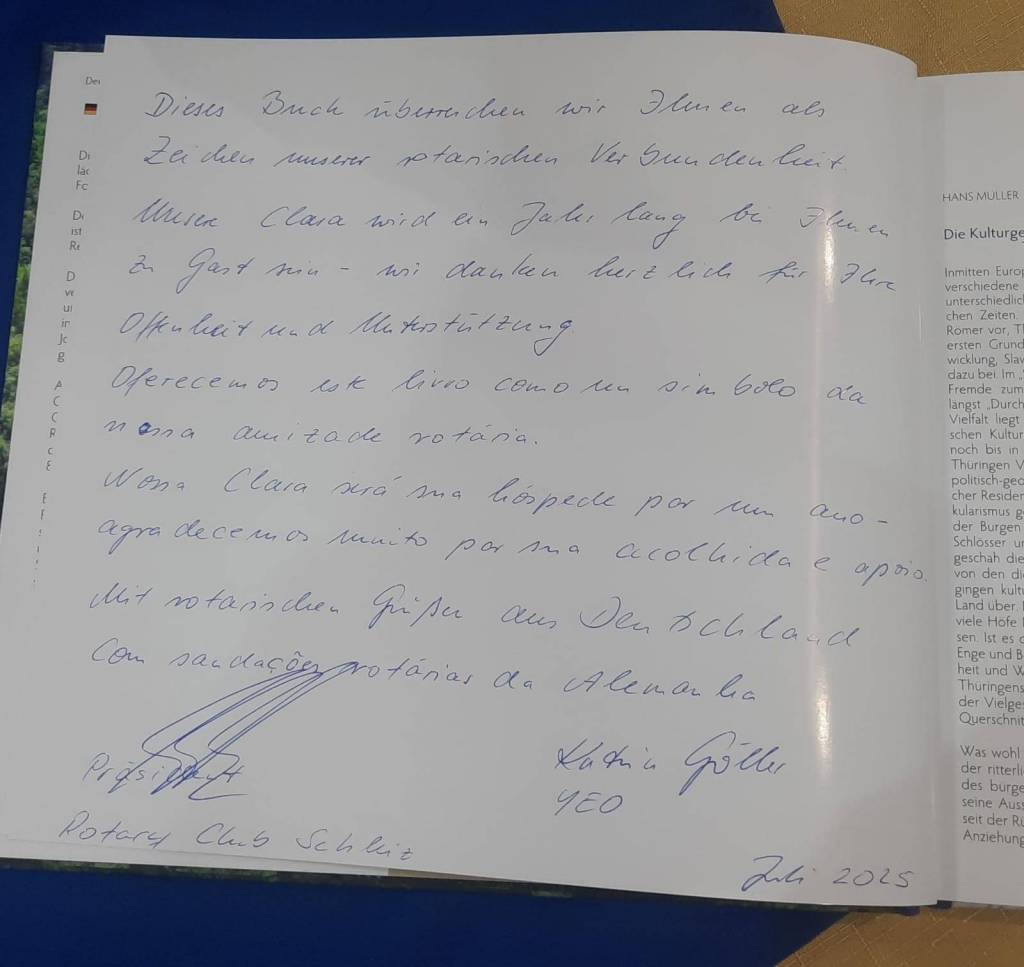 Dieses Buch überreichen wir Ihnen als
Zeichen unserer rotarischen Verbundenheit.
Unsere Clara wird ein Jahr lang bei Ihnen
zu Gast sein - wir danken herzlich für Ihre
Offenheit und Unterstützung
Oferecemos este livro como um simbolo da
nossa amizade rotária.
Nossa Clara será sua hóspede por um ano -
agradecemos muito por sua acolhida e apoio.
Mit rotarischen Grüßen aus Deutschland
Com saudações rotárias da Alemanha
Präsident
Rotary Club Schleiz
Katrin Göller
YEO
Juli 2025
HANS MÜLLER
Die Kulturge
Inmitten Europ
verschiedene
unterschiedlic
chen Zeiten.
Römer vor, Th
ersten Grund
wicklung, Slaw
dazu bei. Im „
Fremde zum
längst „Durch
Vielfalt liegt
schen Kultur
noch bis in
Thüringen V
politisch-geo
cher Residen
kularismus g
der Burgen
Schlösser un
geschah die
von den die
gingen kultu
Land über.
viele Höfe
sen. Ist es d
Enge und B
heit und W
Thüringens
der Vielges
Querschnit
Was wohl
der ritterli
des bürge
seine Auss
seit der Rü
Anziehung